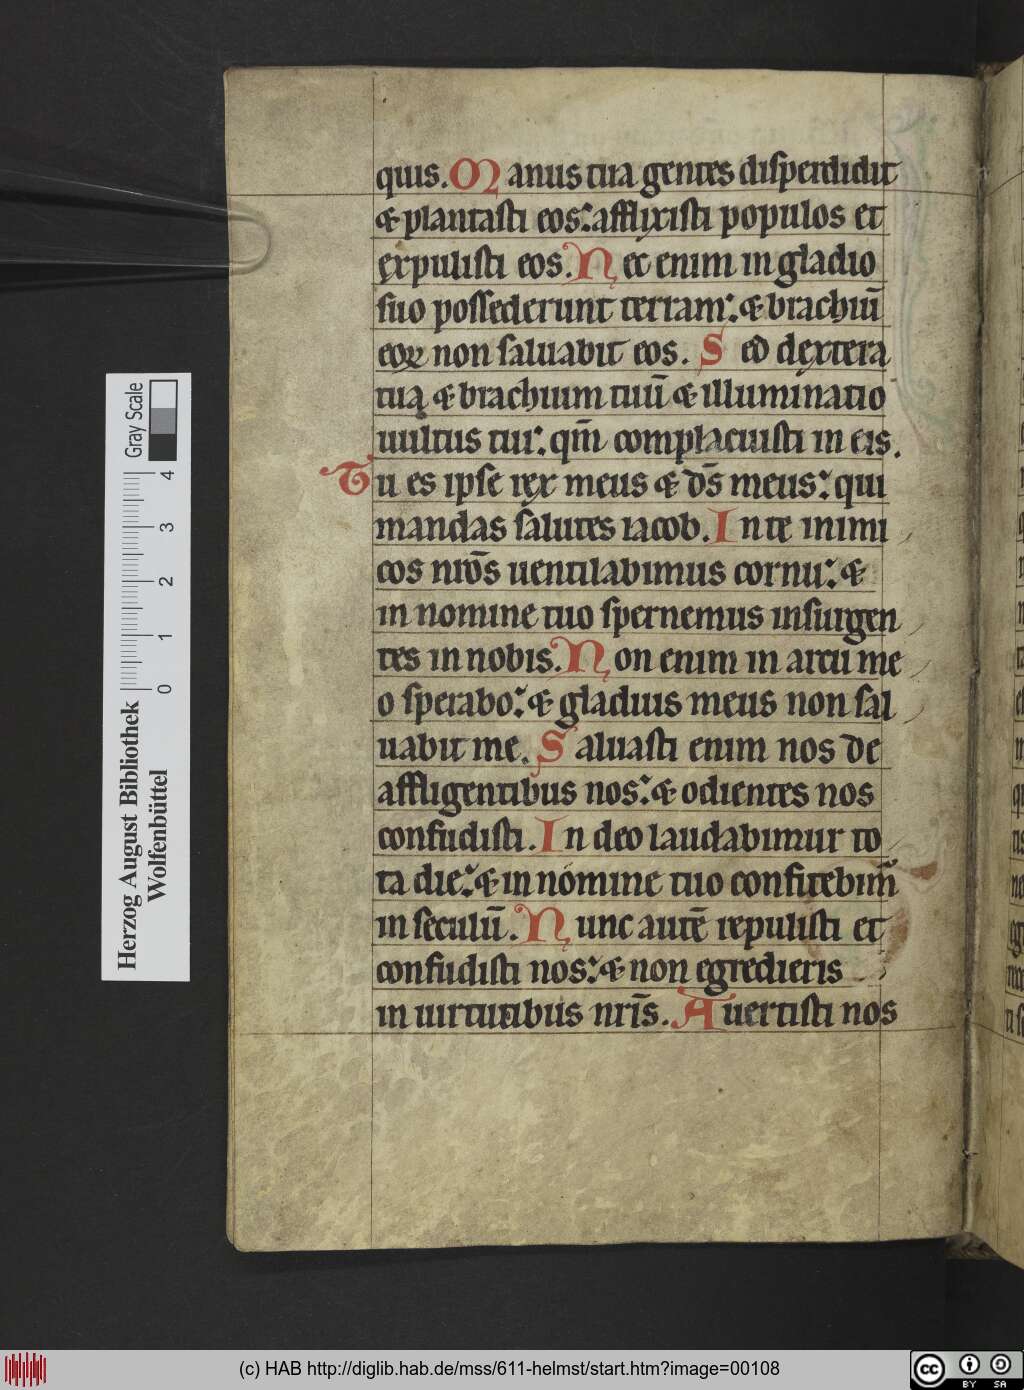 quis. Manus tua gentes disperdidit
& plantasti eos: afflixisti populos et
expulisti eos. Nec enim in gladio
suo possederunt terram: & brachiū
eoꝝ non saluabit eos. Sed dextera
tua & brachium tuū & illuminatio
uultus tui: qm̄ complacuisti in eis.
Tu es ipse rex meus & ds̄ meus: qui
mandas salutes iacob. In te inimi
cos nrōs uentilabimus cornu: &
in nomine tuo spernemus insurgen
tes in nobis. Non enim in arcu me
o sperabo: & gladius meus non sal
uabit me. Saluasti enim nos de
affligentibus nos: & odientes nos
confudisti. In deo laudabimur to
ta die: & in nomine tuo confitebim᷒
in seculū. Nunc autē repulisti et
confudisti nos: & non egredieris
in uirtutibus nrīs. Auertisti nos
Herzog August Bibliothek
Wolfenbüttel
Gray Scale
0 1 2 3 4
(c) HAB http://diglib.hab.de/mss/611-helmst/start.htm?image=00108
cc BY SA